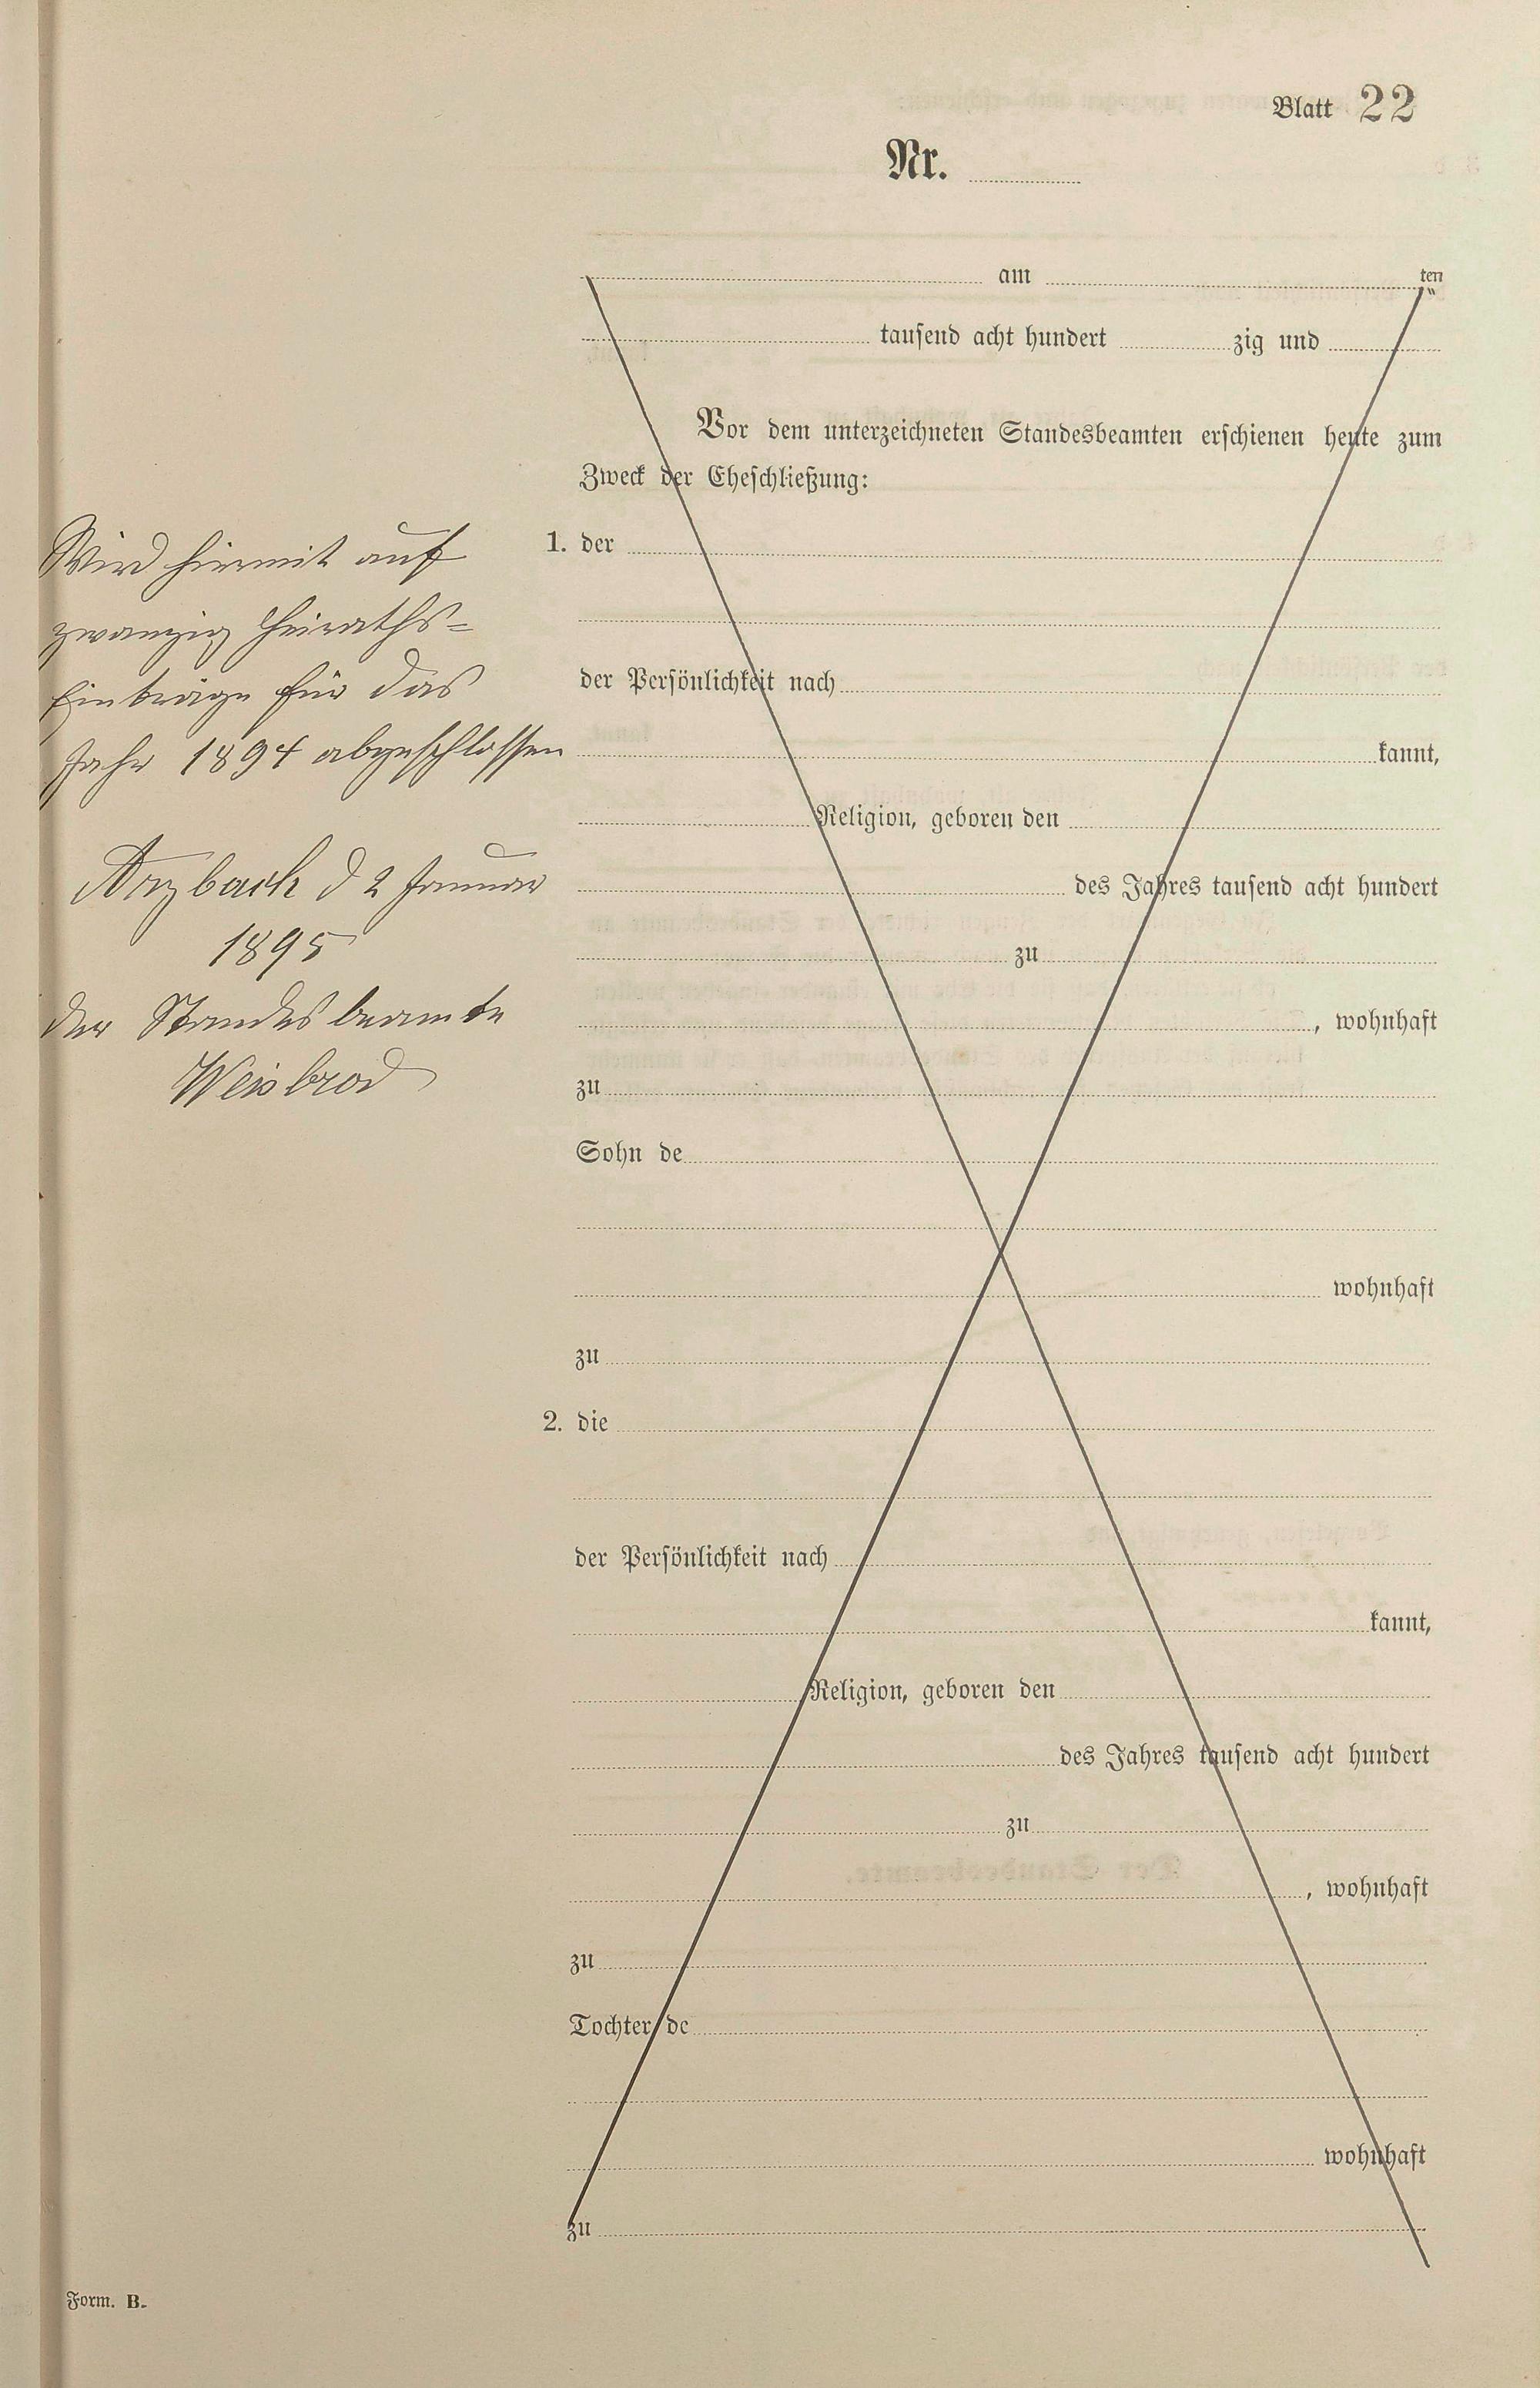 Blatt 22
Nr.
am ten
tausend acht hundert zig und
Vor dem unterzeichneten Standesbeamten erschienen heute zum
Zweck der Eheschließung:
1. der
der Persönlichkeit nach
kannt,
Religion, geboren den
des Jahres tausend acht hundert
zu
, wohnhaft
zu
Sohn de
wohnhaft
zu
2. die
der Persönlichkeit nach
kannt,
Religion, geboren den
des Jahres tausend acht hundert
zu
, wohnhaft
zu
Tochter de
wohnhaft
zu
Wird hiermit auf
zwanzig Heiraths-
Einträge für das
Jahr 1894 abgeschlossen
Arzbach d 2 Januar
1895
Der Standesbeamte
Weisbrod
Form. B.